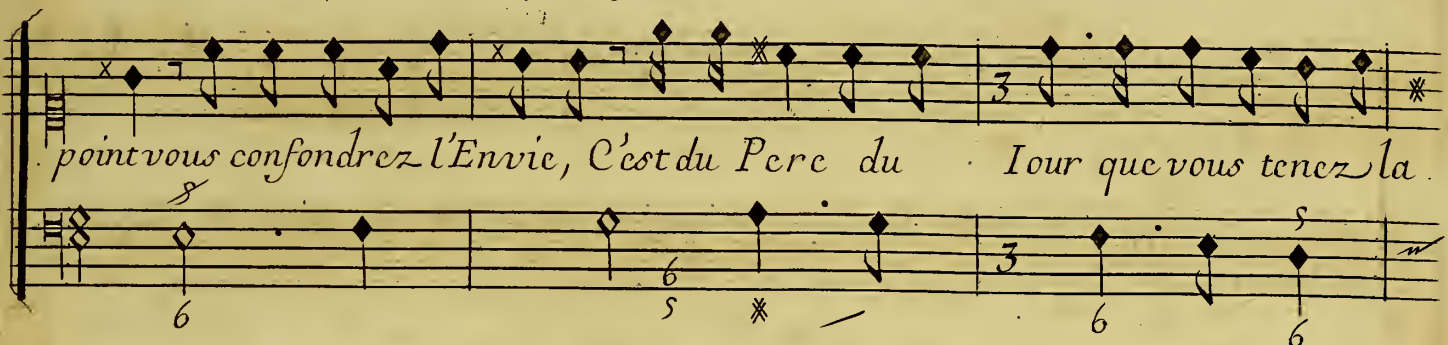 point vous confondrez l'Envie, C'est du Pere du Iour que vous tenez la